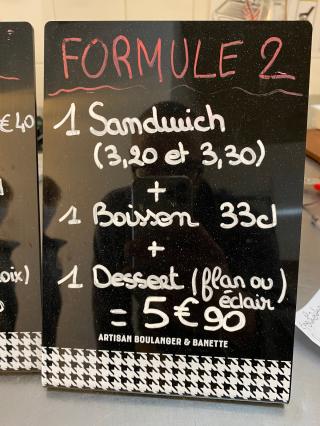 FORMULE 2
1 Sandwich
(3,20 et 3,30)
+
1 Boisson 33cl
+
1 Dessert (flan ou)
éclair
= 5€90
ARTISAN BOULANGER & BANETTE
€40
oix)